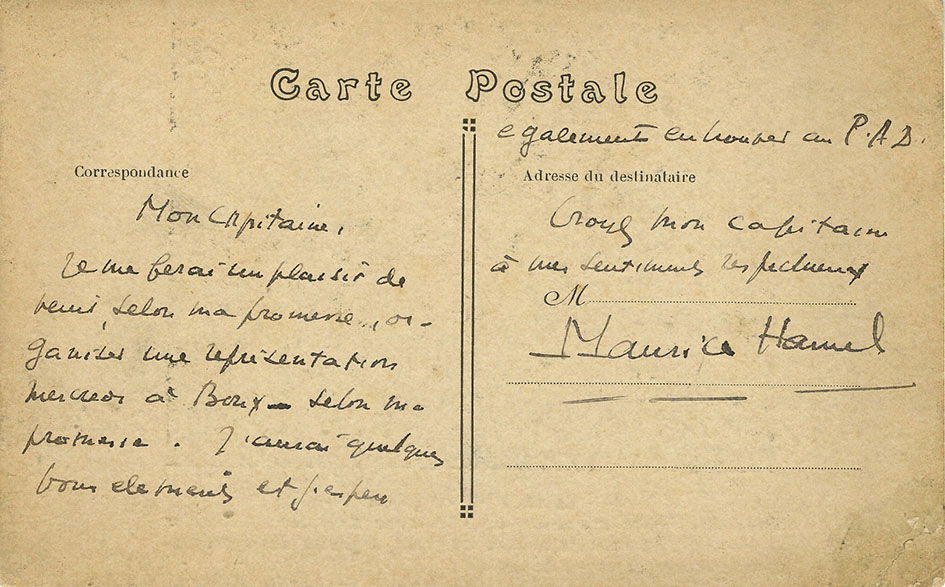 Carte Postale
Correspondance
Mon Capitaine,
Je me ferai un plaisir de
venir, selon ma promesse, or-
ganiser une représentation
mercredi à Boux - selon ma
promesse. J'aurai quelques
bons elements et j'espere
egalement en trouver au P.A.D.
Adresse du destinataire
Croyez mon capitaine
à mes sentiments respectueux
M
Maurice Hamel